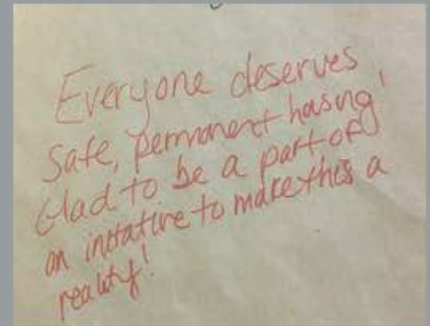 Everyone deserves
safe, permanent hasing!
Glad to be a part of
an initative to make this a
reality!